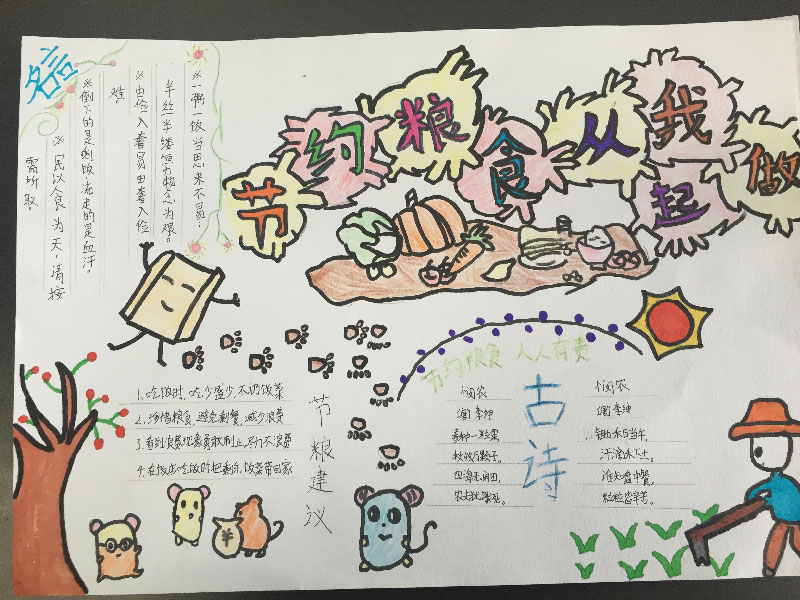 名言
※一粥一饭当思来不易；
半丝半缕恒力物念为艰。
※由俭入奢易由奢入俭
难。
※倒下的是剩饭流走的是血汗。
※民以食为天，请按
需所取。
节约粮食从我做起
节约粮食 人人有责
1.吃饭时，吃少盛少，不扔饭菜
2.珍惜粮食，避免剩餐，减少浪费
3.看到浪费现象勇敢制止，尽力不浪费
4.在饭店吃饭时把剩的饭菜带回家
节粮建议
古诗
悯农
(唐)李绅
春种一粒粟
秋收万颗子。
四海无闲田，
农夫犹饿死。
悯农
(唐)李绅
锄禾日当午，
汗滴禾下土。
谁知盘中餐，
粒粒皆辛苦。